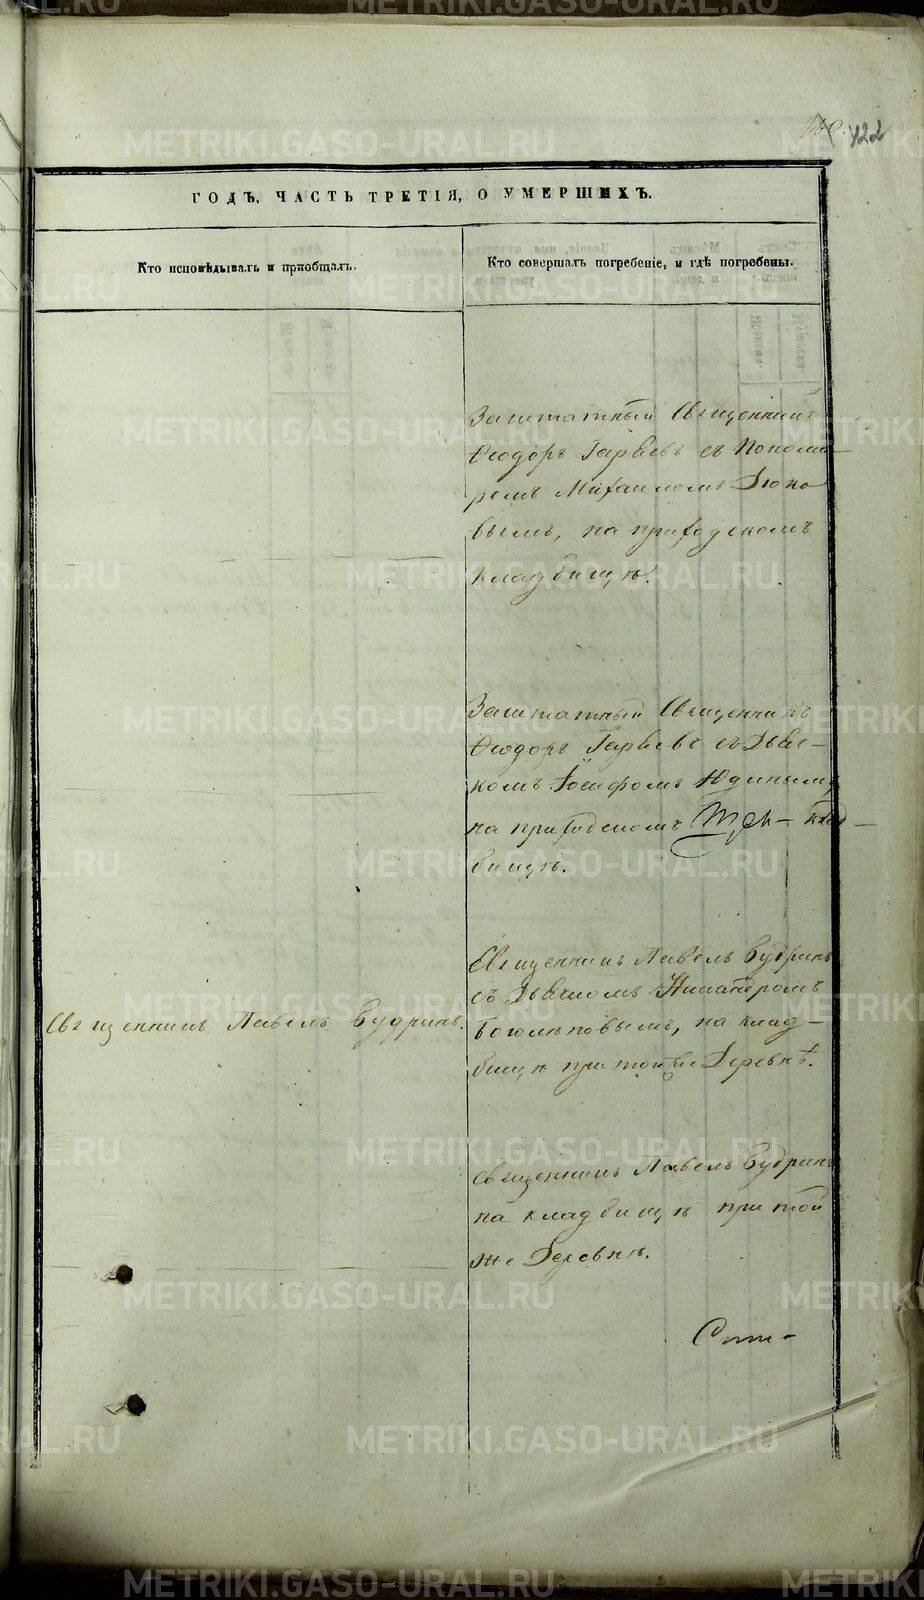 122
ГОДЪ, ЧАСТЬ ТРЕТІЯ, О УМЕРШИХЪ.
Кто исповѣдывалъ и пріобщалъ.
Кто совершалъ погребеніе, и гдѣ погребены.
Заштатный Священникъ
Ѳеодоръ Гаряевъ съ Понома-
ремъ Михаиломъ Дюко
вымъ, на приходскомъ
кладбищѣ.
Заштатный Священникъ
Ѳеодоръ Гаряевъ съ Дьяч-
комъ Іосифомъ Юдинымъ,
на приходскомъ клад-
бищѣ.
Священникъ Павелъ Будринъ.
Священникъ Павелъ Будринъ
съ Дьячкомъ Никаноромъ
Боголѣповымъ, на клад-
бищѣ при той же Деревнѣ.
Священникъ Павелъ Будринъ
на кладбищѣ при той
же Деревнѣ.
METRIKI.GASO-URAL.RU